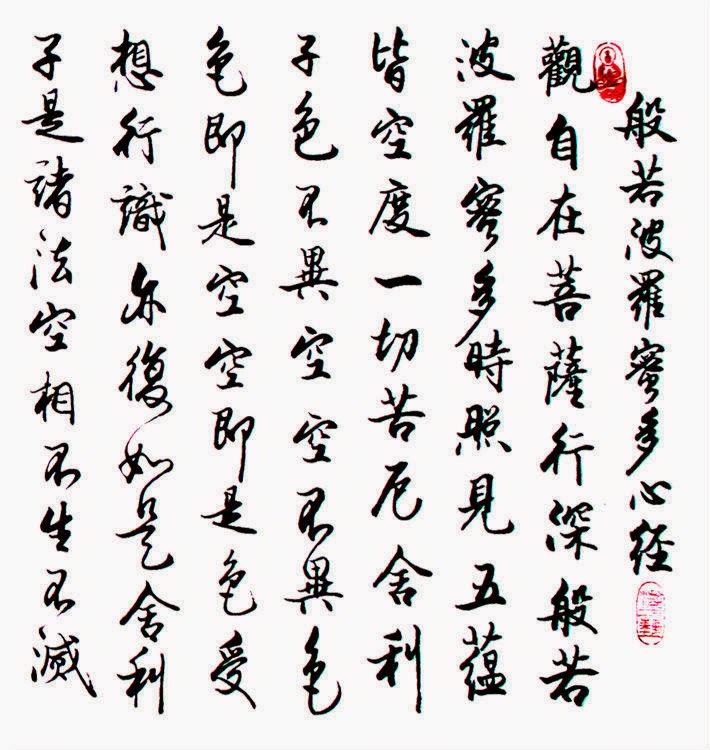 般若波羅蜜多心経
觀自在菩薩行深般若
波羅蜜多時照見五蘊
皆空度一切苦厄舍利
子色不異空空不異色
色即是空空即是色受
想行識亦復如是舍利
子是諸法空相不生不滅